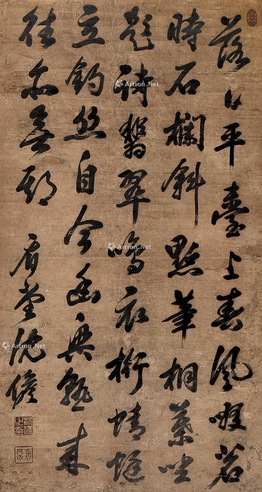 落日平臺上春風啜茗
時石欄斜點筆桐葉坐
題詩翡翠鳴衣桁蜻蜓
立釣絲自今幽興熟來
往亦無期
堂沈
Artron.Net